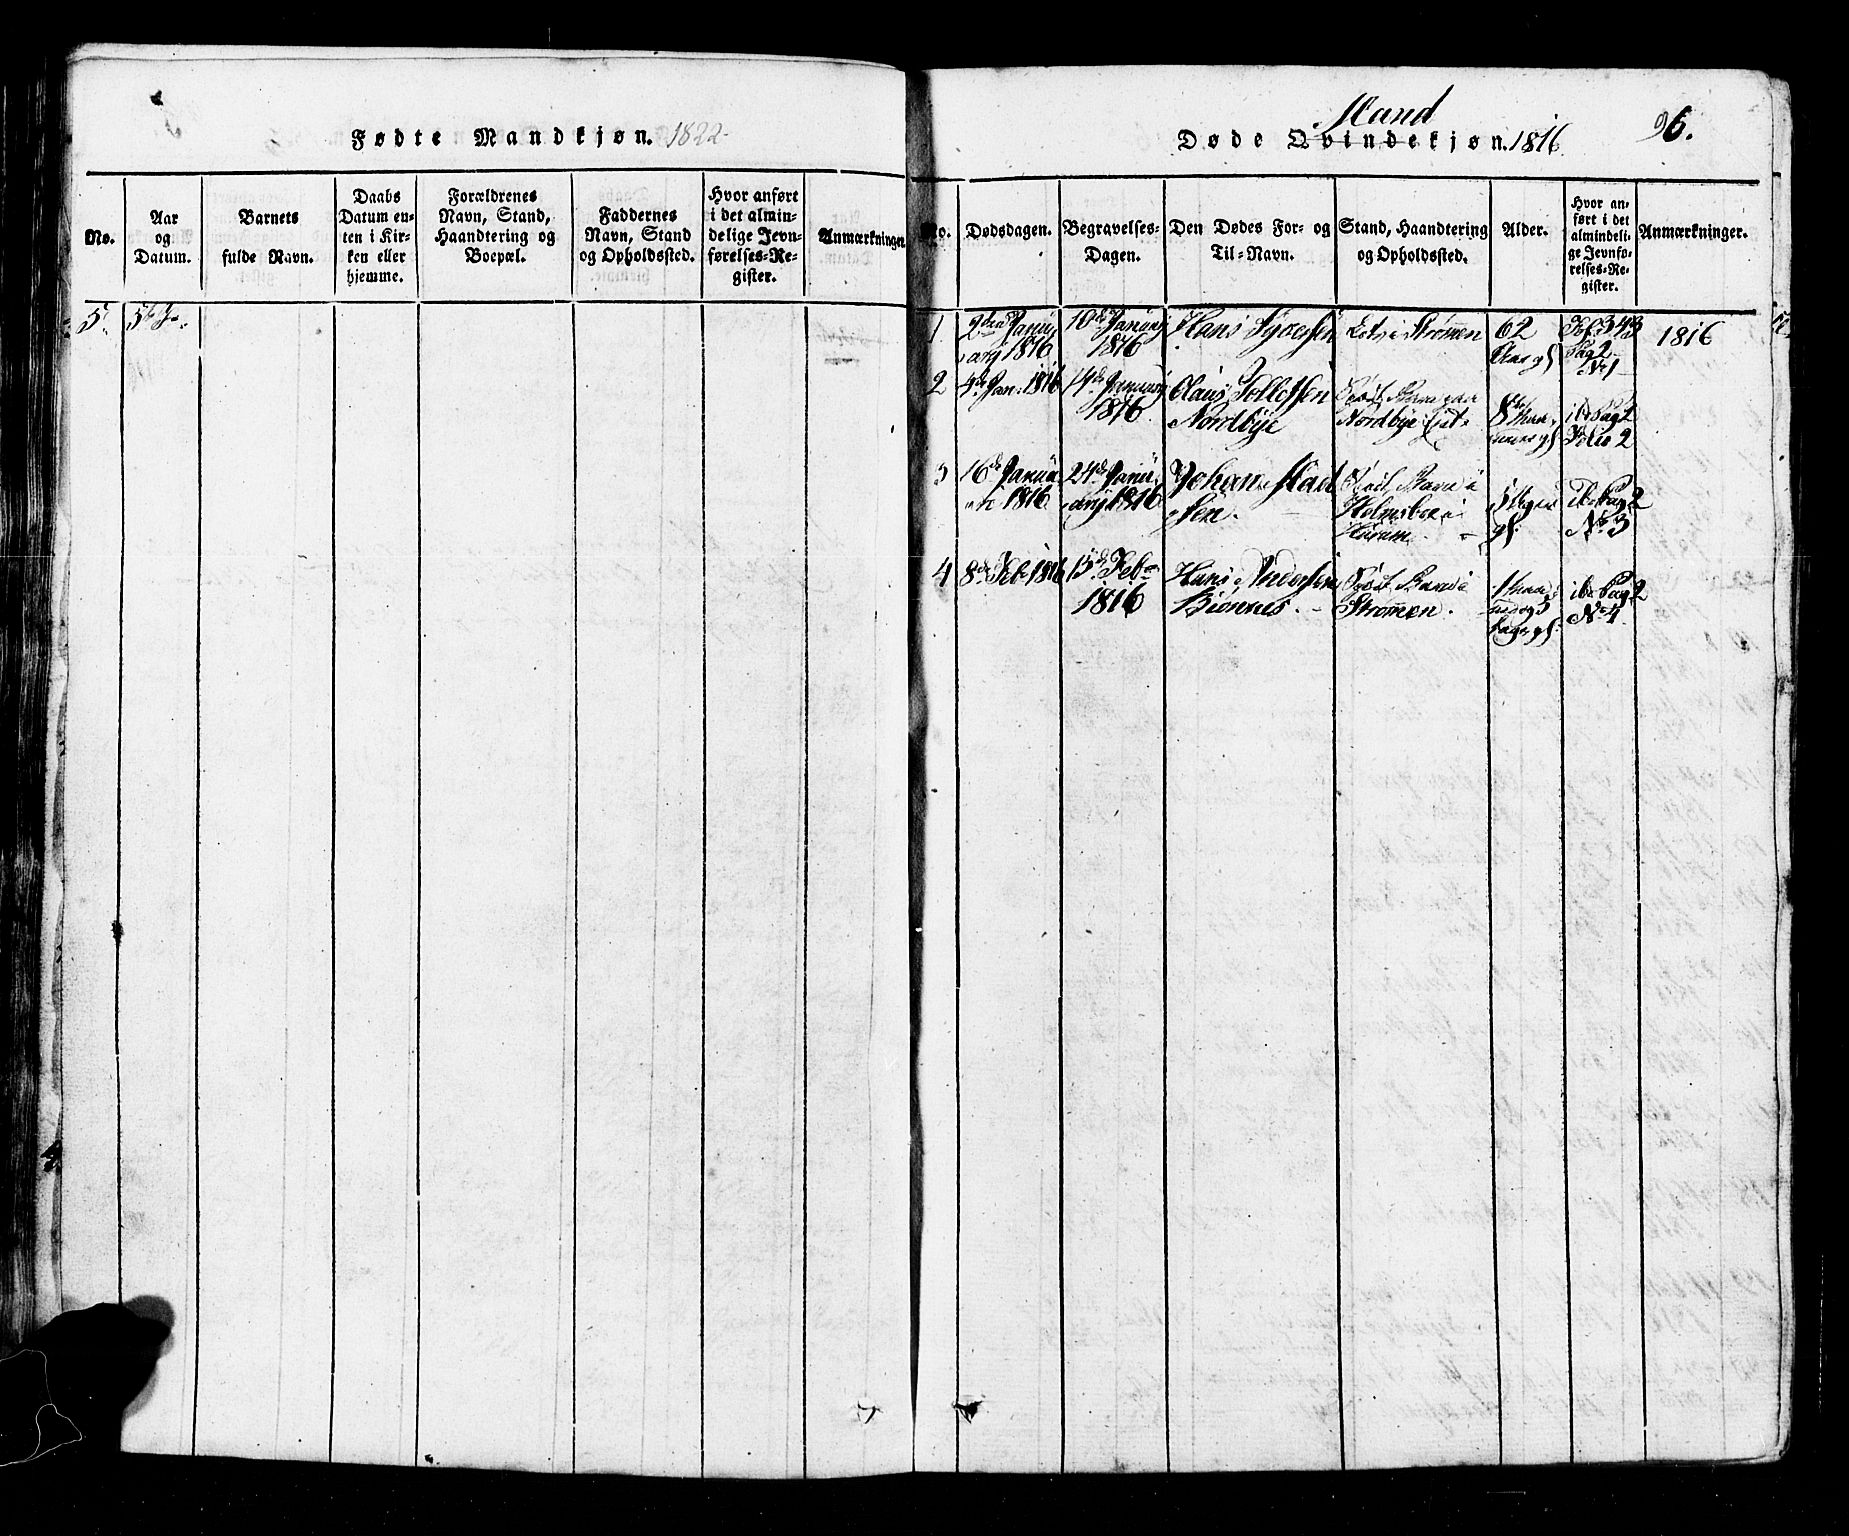 Fødte Mandkjøn. 1822-
No.
Aar
og
Datum.
Barnets
fulde Navn.
Daabs
Datum en-
ten i Kir-
ken eller
hjemme.
Forældrenes
Navn, Stand,
Haandtering og
Boepæl.
Faddernes
Navn, Stand
og Opholdssted.
Hvor anført
i det almin-
delige Jevn-
førelses-Re-
gister.
Anmærkninger
5
Mand
Døde Qvindekjøn. 1816.
96.
No.
Dødsdagen.
Begravelses-
Dagen.
Den Dødes For- og
Til-Navn.
Stand, Haandtering
og Opholdssted.
Alder.
Hvor an-
ført i det
almindeli-
ge Jevnfø-
relses-Re-
gister.
Anmærkninger.
1
2den Janu-
arij 1816
10de Januarij
1816
Hans
Lods i Strømen
62
Aar gl.
Fol. 343
Pag 2
No 1
1816
2
4de Jan. 1816
14de Januarij
1816
Claus Tollefsen
Nordbye
Nordbye
8
gl.
ibd Pag 2
Folio 2
3
16de Janua-
rii 1816
24de Janu-
arij 1816
Johan Mad-
sen.
Holmsboe i
Hurum
5 Uger
gl.
ibd Pag 2
No 3
4
8de Feb. 1816
15de Feb.
1816
Hans Andersen
Biørnes.
Strømen.
1 maa-
ned og 3
Dage gl.
ibd Pag 2
No 4